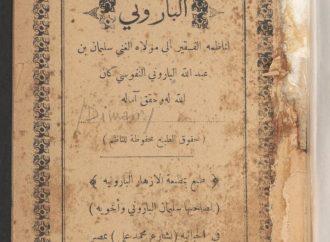 الباروني
لناظمه الفقير الى مولاه الغني سليمان بن
عبد الله الباروني النفوسي كان
الله له وحقق آماله
Diwan
( حقوق الطبع محفوظة للناظم )
﴿ طبع بمطبعة الازهار البارونية ﴾
( لصاحبها سليمان الباروني وأخويه )
( بشارع محمد علي ) بمصر